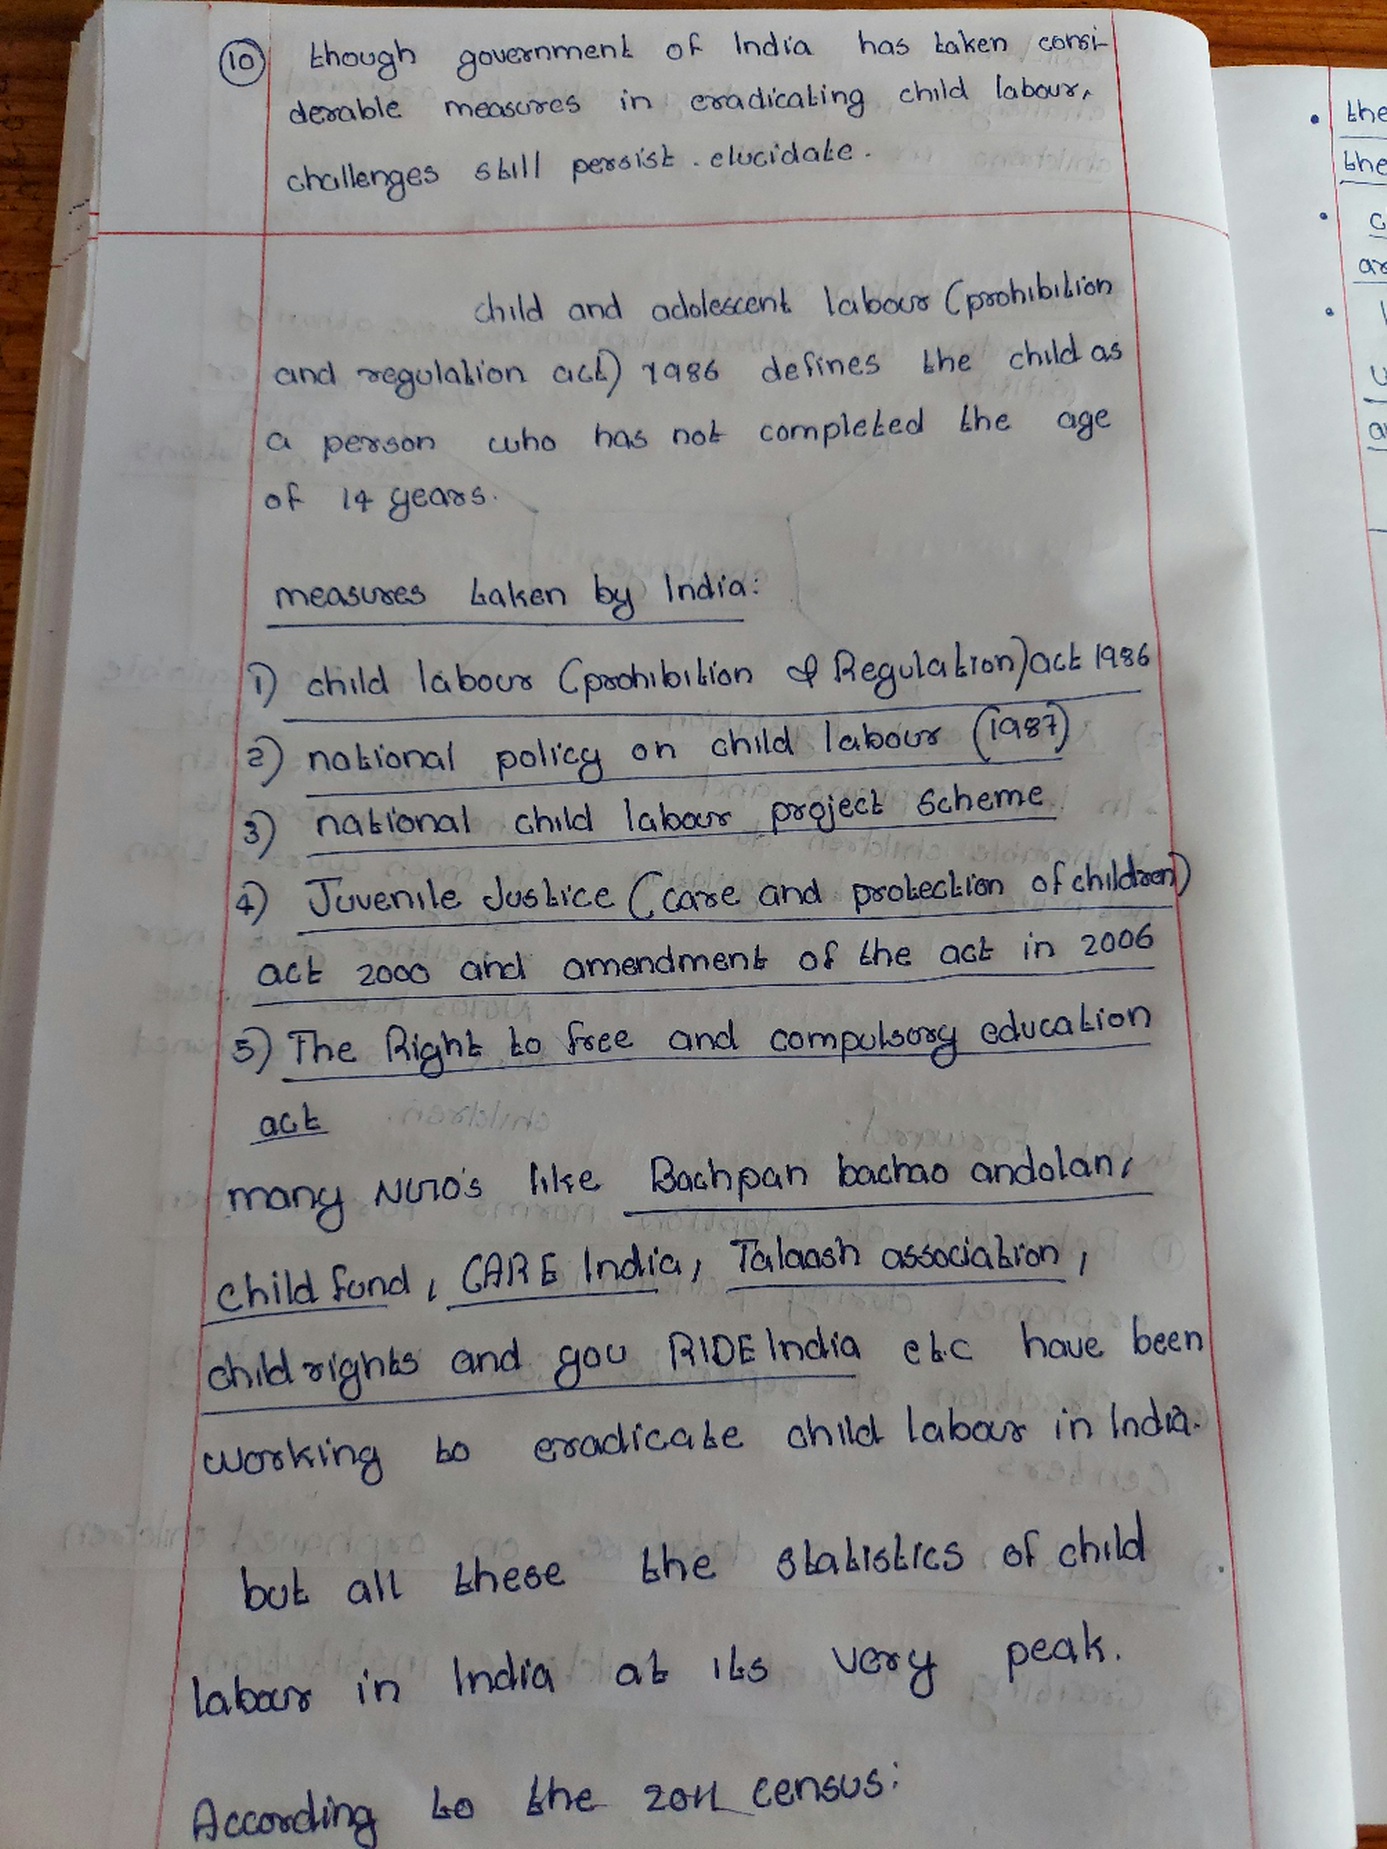 10 though government of India has taken consi-
derable measures in eradicating child labour,
challenges still persist. elucidate.
child and adolescent labour (prohibition
and regulation act) 1986 defines the child as
a person who has not completed the age
of 14 years.
measures taken by India:
1) child labour (prohibition & Regulation) act 1986
2) national policy on child labour (1987)
3) national child labour project scheme
4) Juvenile Justice (care and protection of children)
act 2000 and amendment of the act in 2006
5) The Right to free and compulsory education
act
many NGO's like Bachpan bachao andolan,
child fund, CARE India, Talaash association,
child rights and you RIDE India etc have been
working to eradicate child labour in India.
but all these the statistics of child
labour in India at its very peak.
According to the 2011 census:
• the
the
•
•